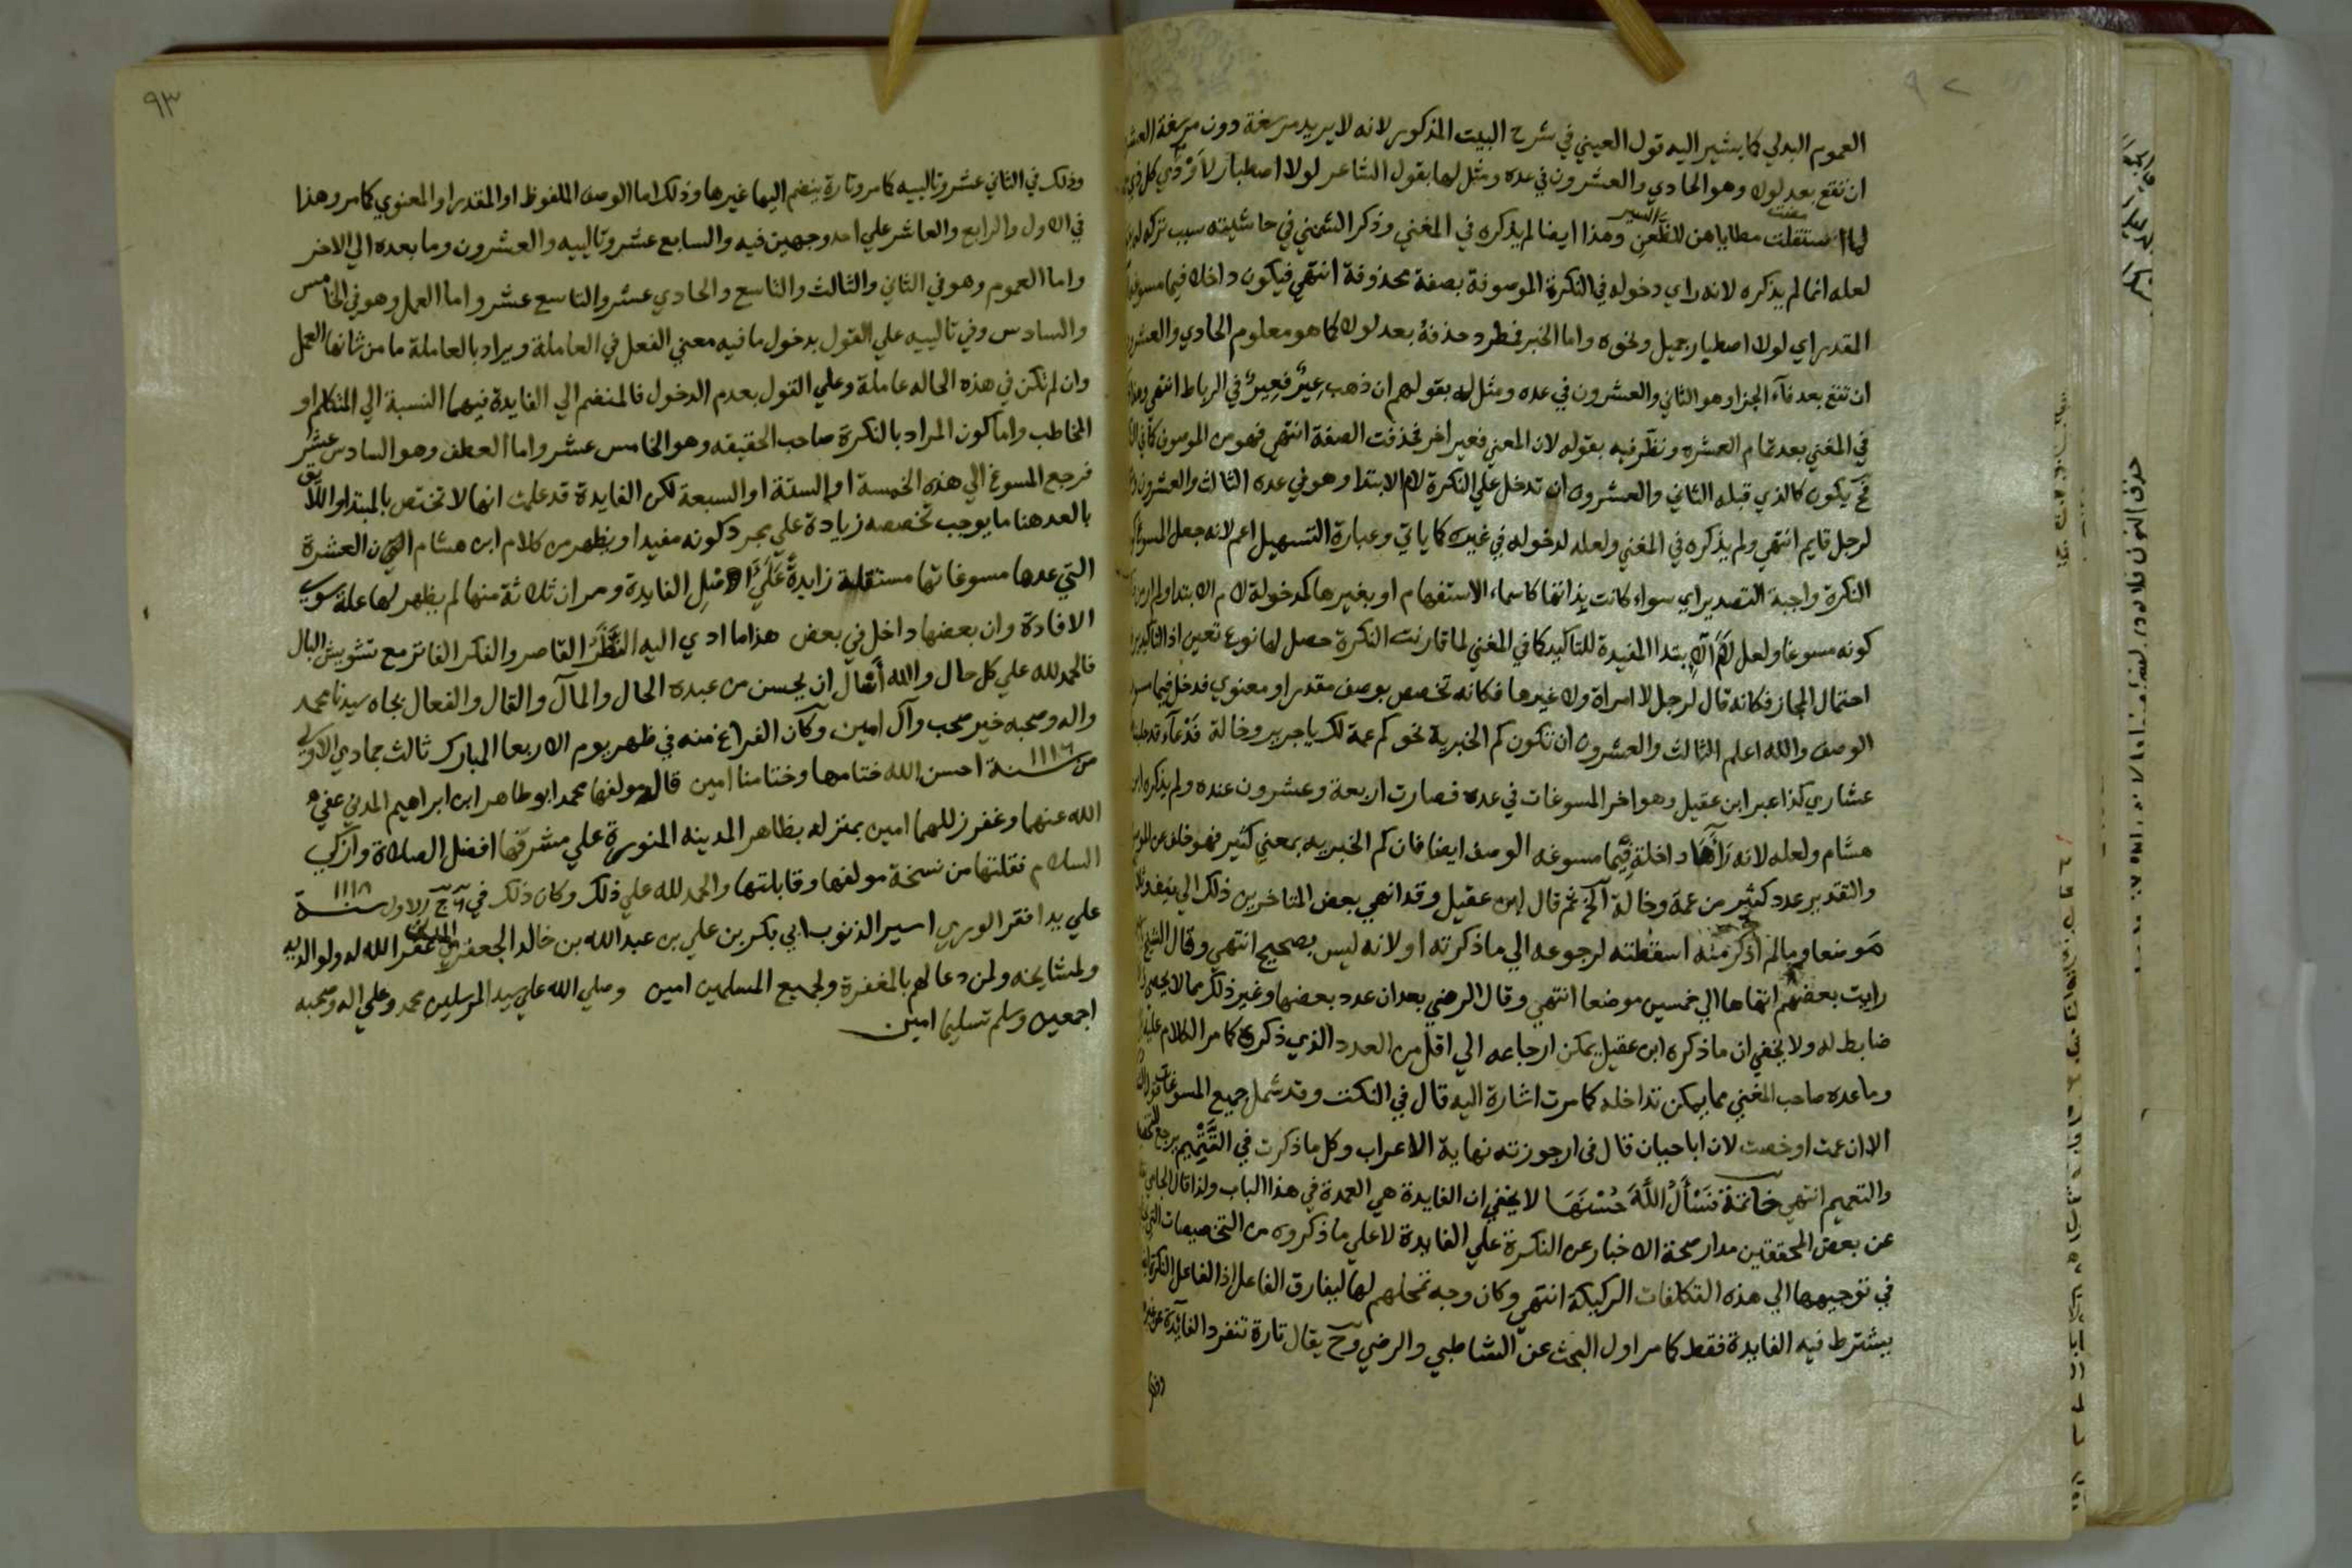 ٩٢
العموم البدلي كما يشير اليه قول العيني في شرح البيت المذكور لانه لا يريد مرسغة دون مرسغة
ان تقع بعد لولا وهو الحادي والعشرون في عده ومثل لها بقول الشاعر لولا اصطبار لاودي كل ذي
لما استقلت مطاياهن للظعن وهذا ايضا لم يذكره في المغني وذكر الشمني في حاشيته سبب تركه
لعله انما لم يذكره لانه راي دخوله في النكرة الموصوفة بصفة محذوفة انتهي فيكون داخلا فيما
المقدر اي لولا اصطبار جميل ونحوه واما الخبر فمطرد حذفه بعد لولا كما هو معلوم الحادي
ان تقع بعد فآء الجزا وهو الثاني والعشرون في عده ومثل له بقولهم ان ذهب عير فعير في الرباط انتهي
في المغني بعد تمام العشره ونظر فيه بقوله لان المعني فعير اخر فحذفت الصفة انتهي فهو من الموصوف
فح يكون كالذي قبله الثاني والعشرون ان تدخل علي النكرة لام الابتدا وهو في عده الثالث والعشرون
لرجل قايم انتهي ولم يذكره في المغني ولعله لدخوله في غيره كما ياتي وعبارة التسهيل اعم لانه جعل
النكرة واجبة التصدير اي سواء كانت بذاتها كاسماء الاستفهام او بغيرها كمدخولة لام الابتدا
كونه مسوغا ولعل لام الابتدا المفيدة للتاكيد كما في المغني لما قارنت النكرة حصل لها نوع تعين
احتمال المجاز فكانه قال لرجل لا امراة ولا غيرها فكانه تخصص بوصف مقدر او معنوي فدخل فيما
الوصف والله اعلم الثالث والعشرون ان تكون كم الخبرية نحو كم عمة لك يا جرير وخالة فدعآء
عشاري كذا عبر ابن عقيل وهو اخر المسوغات في عده فصارت اربعة وعشرون عنده ولم يذكره
هشام ولعله لانه رآها داخلة فيما مسوغه الوصف ايضا فان كم الخبريه بمعني كثير فهو خلف
والتقدير عدد كثير من عمة وخالة آلخ ثم قال ابن عقيل وقد انهي بعض المتاخرين ذلك الي
موضعا وما لم اذكر منه اسقطته لرجوعه الي ما ذكرته او لانه ليس بصحيح انتهي وقال الشيخ
رايت بعضهم انهاها الي خمسين موضعا انتهي وقال الرضي بعد ان عدد بعضها وغير ذلك مما لا يحصي
ضابط له ولا يخفي ان ما ذكره ابن عقيل يمكن ارجاعه الي اقل من العدد الذي ذكره كما مر الكلام عليه
وما عده صاحب المغني مما يمكن تداخله كما مرت اشارة اليه قال في النكت وقد شمل جميع المسوغات
الا ان عمت او خصت لان ابا حيان قال في ارجوزته نهاية الاعراب وكل ما ذكرت في التتميم يرجع
والتعميم انتهي خاتمة نسأل الله حسنها لا يخفي ان الفايدة هي العمدة في هذا الباب ولذا قال الجامي
عن بعض المحققين مدار صحة الاخبار عن النكرة علي الفايدة لا علي ما ذكروه من التخصيصات
في توجيهها الي هذه التكلفات الركيكة انتهي وكان وجه تمحلهم لها ليفارق الفاعل اذ الفاعل النكرة
يشترط فيه الفايدة فقط كما مر اول البحث عن الشاطبي والرضي وح يقال تارة تنفرد الفآئدة
٩٣
وذلك في الثاني عشر وتالييه كما مر وتارة ينضم اليها غيرها وذلك اما الوصف الملفوظ او المقدر او المعنوي كما مر وهذا
في الاول والرابع والعاشر علي احد وجهين فيه والسابع عشر وتالييه والعشرون وما بعده الي الاخر
واما العموم وهو في الثاني والثالث والتاسع والحادي عشر والتاسع عشر واما العمل وهو في الخامس
والسادس وفي تالييه علي القول بدخول ما فيه معني الفعل في العاملة ويراد بالعاملة ما من شانها العمل
وان لم تكن في هذه الحاله عاملة وعلي القول بعدم الدخول فالمنضم الي الفايدة فيهما النسبة الي المتكلم او
المخاطب واما كون المراد بالنكرة صاحب الحقيقه وهو الخامس عشر واما العطف وهو السادس عشر
فرجع المسوغ الي هذه الخمسة او الستة او السبعة لكن الفايدة قد علمت انها لا تختص بالمبتدا واللائق
بالعد هنا ما يوجب تخصصه زيادة علي مجرد كونه مفيدا ويظهر من كلام ابن هشام ان العشرة
التي عدها مسوغاتها مستقلة زايدة علي اصل الفايدة ومر ان ثلاثة منها لم يظهر لها علة سوي
الافادة وان بعضها داخل في بعض هذا ما ادي اليه النظر القاصر والفكر الفاتر مع تشويش البال
فالحمد لله علي كل حال والله أسال ان يحسن من عبده الحال والمآل والقال والفعال بجاه سيدنا محمد
واله وصحبه خير صحب وآل امين وكان الفراغ منه في ظهر يوم الاربعا المبارك ثالث جمادي الاولي
من سنة ١١١٦ احسن الله ختامها وختامنا امين قال مولفها محمد ابو طاهر ابن ابراهيم المدني عفي
الله عنهما وغفر زللهما امين بمنزله بظاهر المدينه المنورة علي مشرفها افضل الصلاة وازكي
السلام نقلتها من نسخة مولفها وقابلتها والحمد لله علي ذلك وكان ذلك في الاول سنة ١١١٨
علي يد افقر الوري اسير الذنوب ابي بكر بن علي بن عبد الله بن خالد الجعفري المدني غفر الله له ولوالديه
ولمشايخه ولمن دعا لهم بالمغفرة ولجميع المسلمين امين وصلي الله علي سيد المرسلين محمد وعلي اله وصحبه
اجمعين وسلم تسليما امين